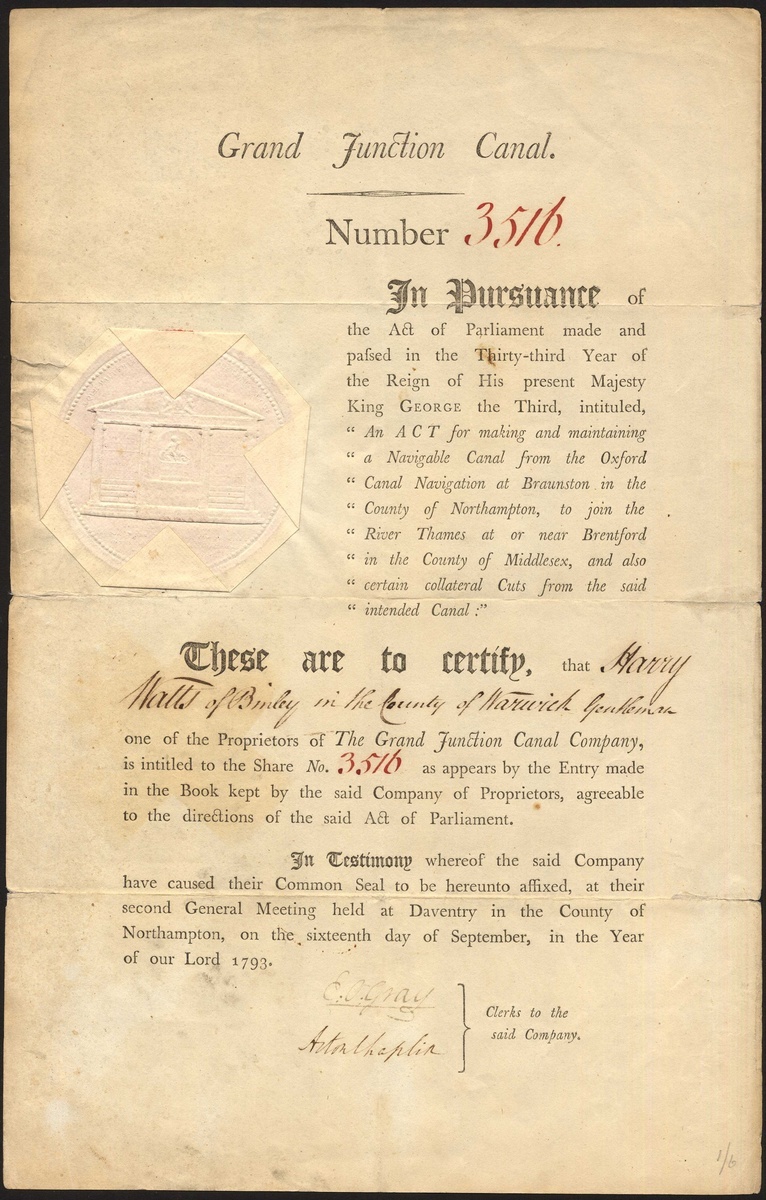 Grand Junction Canal.
Number 3516.
In Pursuance of
the Act of Parliament made and
paſsed in the Thirty-third Year of
the Reign of His present Majesty
King GEORGE the Third, intituled,
“ An ACT for making and maintaining
“ a Navigable Canal from the Oxford
“ Canal Navigation at Braunston in the
“ County of Northampton, to join the
“ River Thames at or near Brentford
“ in the County of Middlesex, and also
“ certain collateral Cuts from the said
“ intended Canal :”
These are to certify, that Harry
Watts of Binley in the County of Warwick Gentleman
one of the Proprietors of The Grand Junction Canal Company,
is intitled to the Share No. 3516 as appears by the Entry made
in the Book kept by the said Company of Proprietors, agreeable
to the directions of the said Act of Parliament.
In Testimony whereof the said Company
have caused their Common Seal to be hereunto affixed, at their
second General Meeting held at Daventry in the County of
Northampton, on the sixteenth day of September, in the Year
of our Lord 1793.
E. O. Gray
Acton Chaplin
Clerks to the
said Company.
1/6